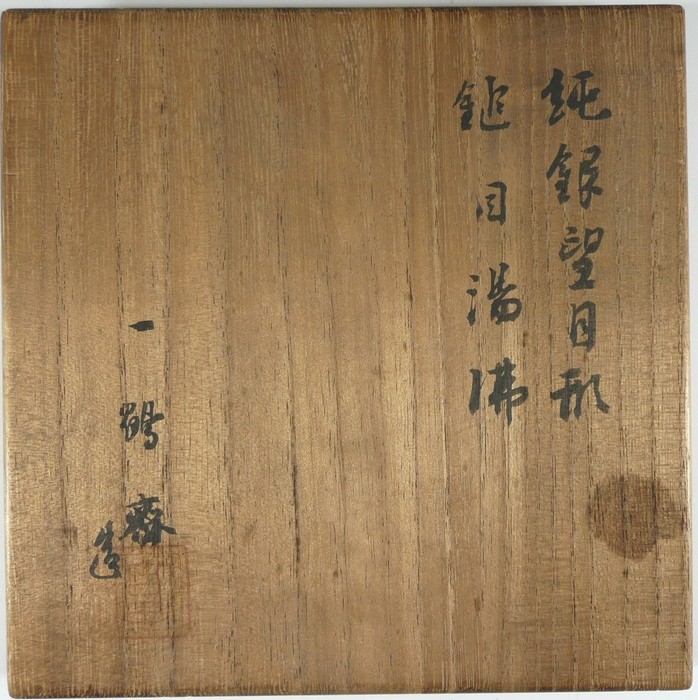 純銀望月形
鎚目湯沸
一鶴斎造